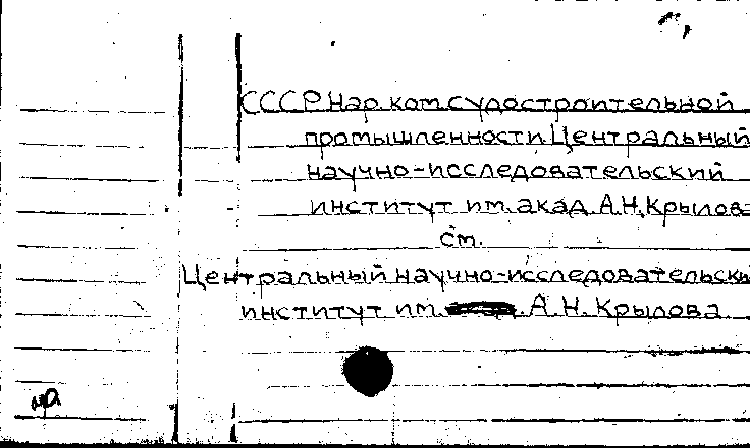 СССР. Нар. ком. судостроительной
промышленности. Центральный
научно-исследовательский
институт им. акад. А.Н. Крылова
см.
Центральный научно-исследовательский
институт им. А. Н. Крылова